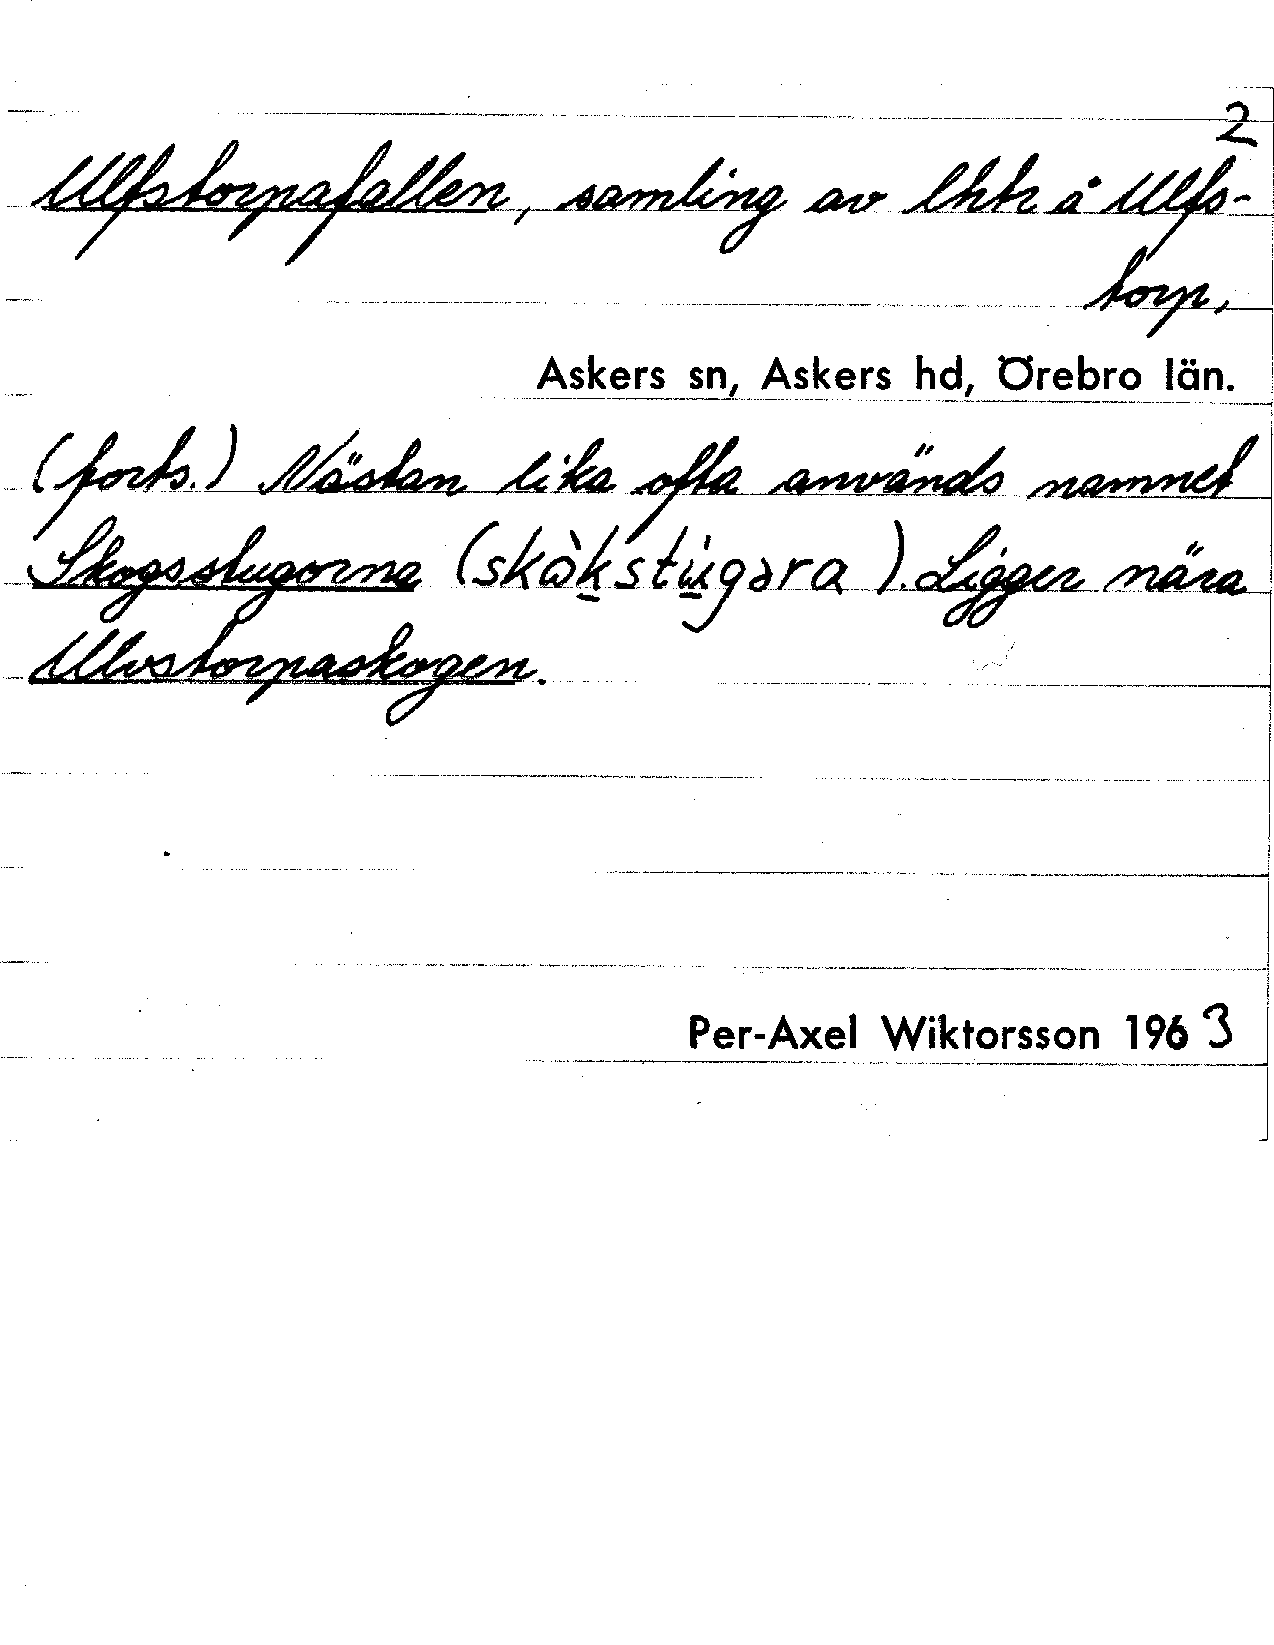 2
Ulfstorpafallen, samling av lhtr å Ulfs-
torp,
Askers sn, Askers hd, Örebro län.
(forts.) Nästan lika ofta används namnet
Skogsstugorna (skòkstùgəra). Ligger nära
Ulvstorpaskogen.
Per-Axel Wiktorsson 1963